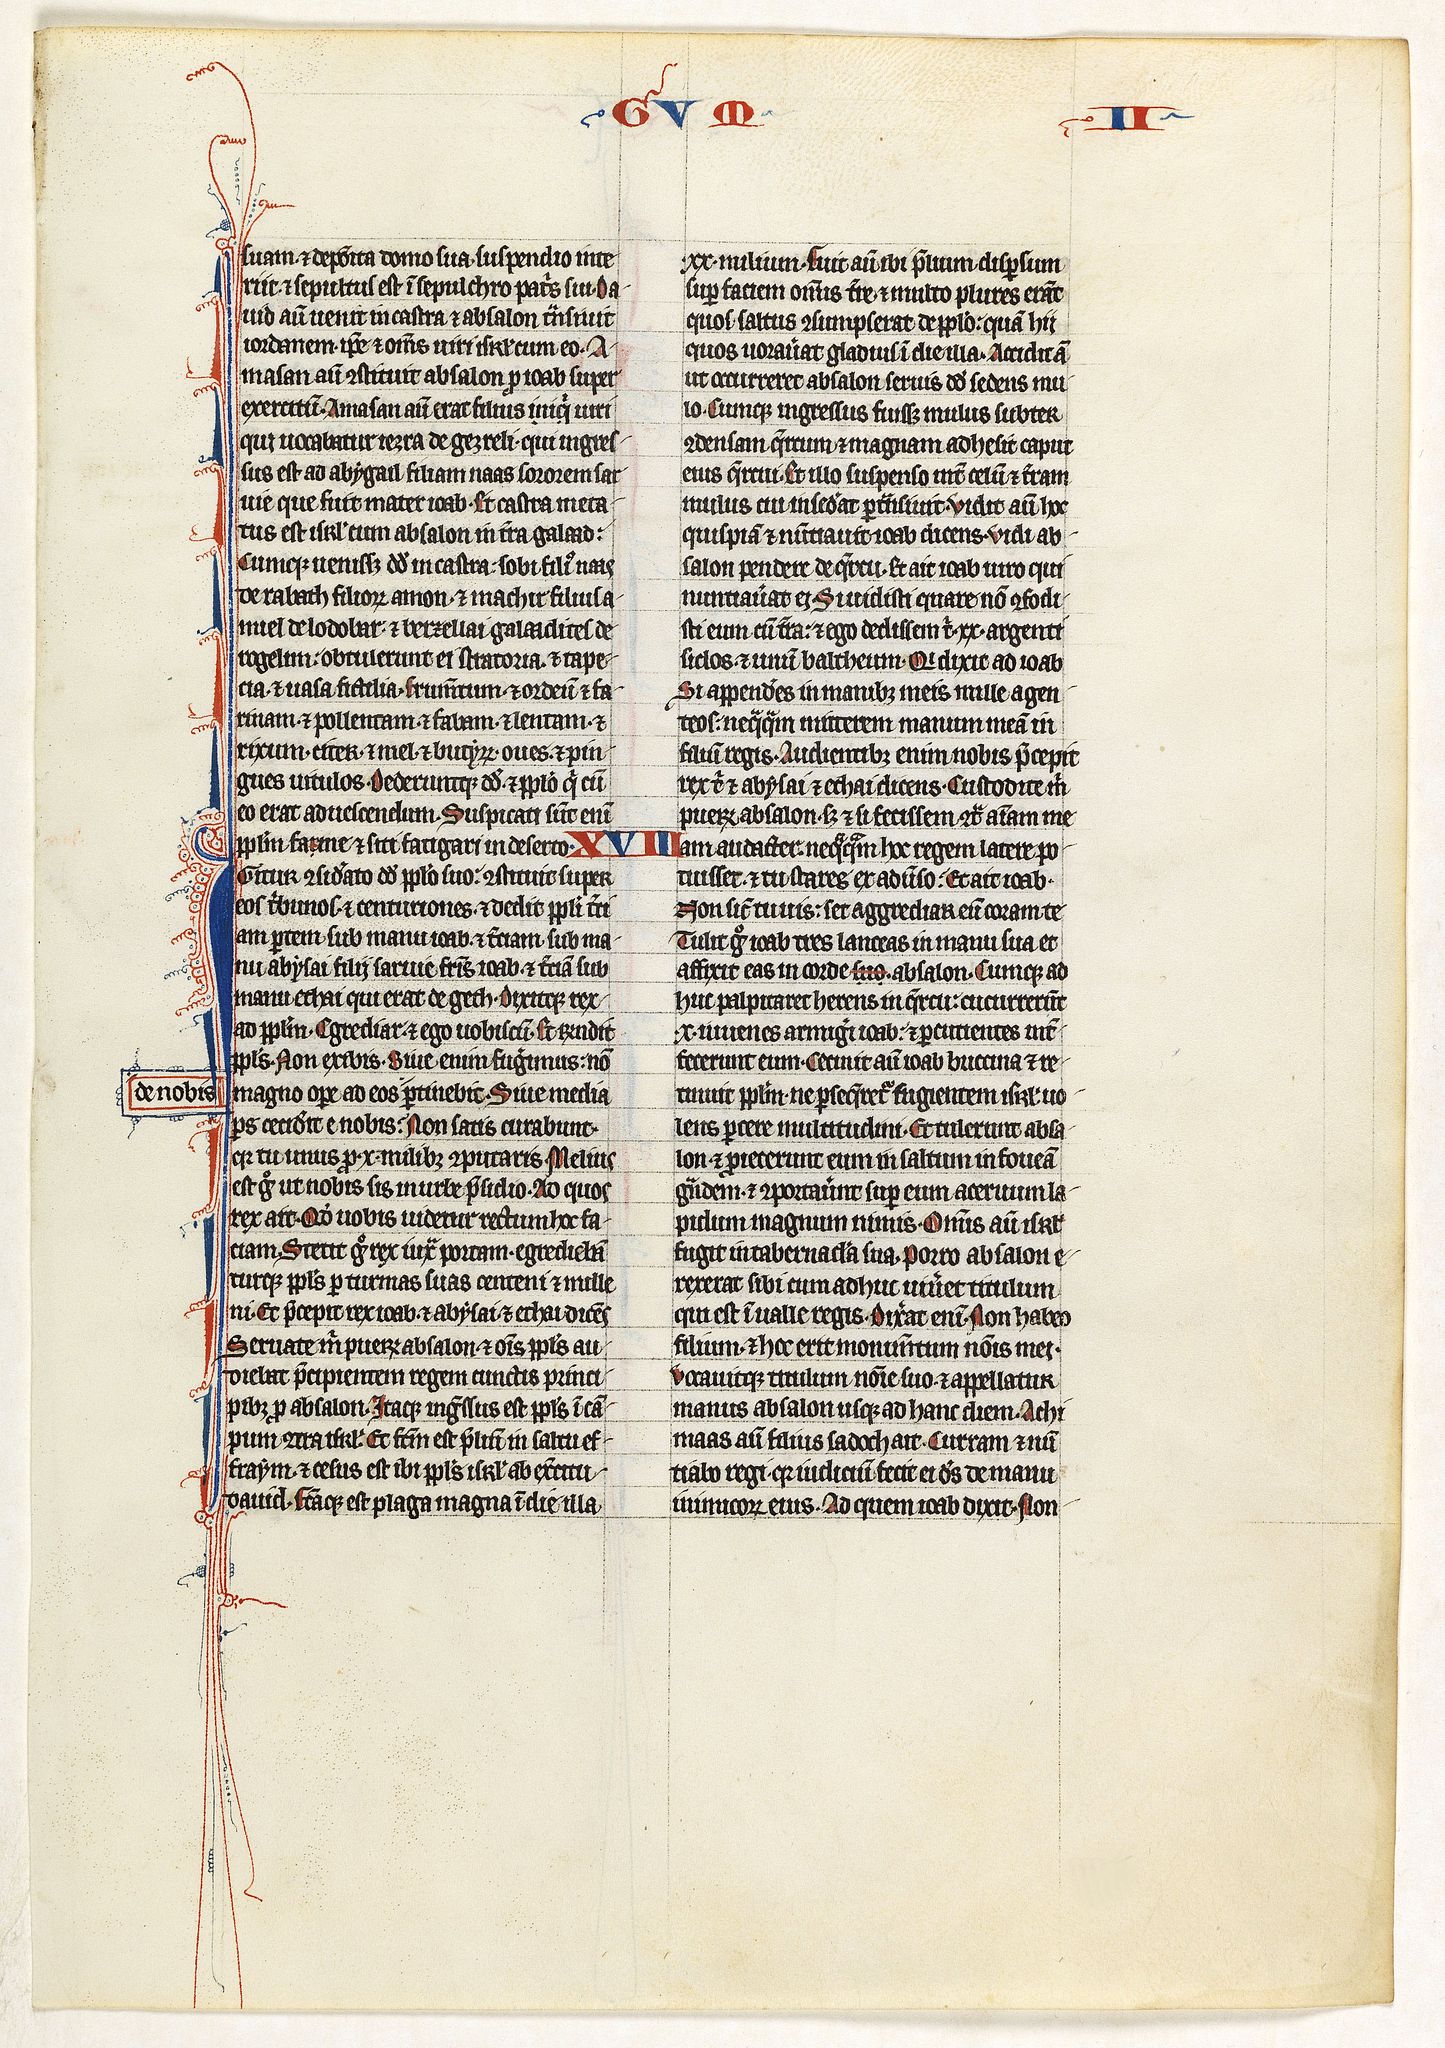 GVM
II
suam · ⁊ deposita domo sua · suspendio inte-
riit · ⁊ sepultus est ī sepulchro patris sui · Da-
uid aū uenit in castra ⁊ absalon tnsiuit
iordanem · ipe ⁊ om̄s uiri isrl' cum eo · A-
masan aū ꝯstituit absalon p ioab super
exercitū · Amasan aū erat filius uiri
qui uocabatur iezra de gezreli · qui ingres-
sus est ad abygail filiam naas sororem sar
uie que fuit mater ioab · Et castra meta-
tus est isrl' cum absalon in t̄ra galaad :
Cumqꝫ uenissꝫ dd̄ in castra : sobi filiꝰ naas
de rabath filioꝝ amon · ⁊ machir filius a-
miel de lodobar · ⁊ berzellai galaadites de
rogelim : obtulerunt ei stratoria · ⁊ tape-
cia · ⁊ uasa fictilia · frumtum · ⁊ ordeū ⁊ fa-
rinam · ⁊ pollentam · ⁊ fabam · ⁊ lentam · ⁊
rixum · citer · ⁊ mel · ⁊ butyrꝝ · oues · ⁊ pin-
gues uitulos · Dederuntqꝫ dd̄ · ⁊ pplo q̄ cū
eo erat ad uescendum · Suspicati sūt enī
pplm fame ⁊ siti fatigari in deserto · XVIII
Gitur ꝯsidato dd̄ pplo suo : ꝯstituit super
eos tbunos · ⁊ centuriones · ⁊ dedit ppli tci
am ꝑtem sub manu ioab · ⁊ tciam sub ma-
nu abysai filij saruie fris ioab · ⁊ tciā sub
manu ethai qui erat de geth · Dixitqꝫ rex
ad pplm · Egrediar · ⁊ ego uobiscū · Et rndit
ppls · Non exibis · Siue enim fugimus : nō
magno ope ad eos ꝑtinebit · Siue media
de nobis
ps cecidit e nobis : Non satis curabunt ·
qr tu unus p · x · milibꝫ ꝯputaris · Melius
est g̊ ut nobis sis in urbe psidio · Ad quos
rex ait · Qd̄ uobis uidetur rectum hoc fa-
ciam · Stetit g̊ rex iux portam · egredieba
turqꝫ ppls ꝑ turmas suas centeni ⁊ mille
ni · Et pcepit rex ioab · ⁊ abysai · ⁊ ethai dicēs
Seruate m̄ pueꝝ absalon · ⁊ ois ppls au-
diebat pcipientem regem cunctis princi
pibꝫ p absalon · Itaqꝫ ingssus est ppls ī cā-
pum ꝯtra isrl' · Et fcm est pliū in saltu ef-
fraym · ⁊ cesus est ibi ppls isrl' ab excitu
dauid · Fcaqꝫ est plaga magna ī die illa ·
xx · milium · Fuit aū ibi plium dispsum
sup faciem om̄is tre · ⁊ multo plures erāt
quos saltus ꝯsumpserat de pplo : quā hii
quos uorauat gladius ī die illa · Accidit ā
ut occurreret absalon seruis dd̄ sedens mu-
lo · Cumqꝫ ingressus fuissꝫ mulus subter
ꝯdensam qrcum ⁊ magnam adhesit caput
eius qrcui · Et illo suspenso int celū ⁊ tram
mulus cui insedat ptnsiuit · Vidit aū hoc
quispiā ⁊ nūtiauit ioab dicens · Vidi ab-
salon pendere de qrcu · Et ait ioab uiro qui
nuntiauat ei · Si uidisti quare nō ꝯfodi-
sti eum cū tra : ⁊ ego dedissem t̄ · xx · argenti
siclos · ⁊ unū baltheum · Qi dixit ad ioab
Si appendes in manibꝫ meis mille agen-
teos : neqqm mitterem manum meā in
filiū regis · Audientibꝫ enim nobis pcepit
rex t̄ ⁊ abysai ⁊ ethai dicens · Custodite m̄
pueꝝ absalon · sꝫ ⁊ si fecissem ꝯt̄ aiam me
am audacter · neqqm hoc regem latere po-
tuisset · ⁊ tu stares ex aduso : Et ait ioab ·
Non sic̄ tu uis : set aggrediar eū coram te
Tulit g̊ ioab tres lanceas in manu sua et
affixit eas in corde suo · absalon · Cumqꝫ ad
huc palpitaret herens in qrcu : cucurrerūt
x · iuuenes armigi ioab : ⁊ ꝑcutientes int̄-
fecerunt eum · Cecinit aū ioab buccina ⁊ re-
tinuit pplm · ne ꝑseqret fugientem isrl' uo
lens ꝑcere multitudini · Et tulerunt absa
lon · ⁊ proiecerunt eum in saltum in foueā
gndem · ⁊ ꝯportauūt sup eum aceruum la-
pidum magnum nimis · Omis aū isrl'
fugit in tabernacla sua · Porro absalon e-
rexerat sibi cum adhuc uiuet titulum
qui est ī ualle regis · Dixat enī · Non habeo
filium · ⁊ hoc erit monumtum nois mei ·
Vocauitqꝫ titulum noie suo · ⁊ appellatur
manus absalon usqꝫ ad hanc diem · Achi
maas aū filius sadoch ait · Curram ⁊ nū-
tiabo regi · qr iudiciū fecit ei ds de manu
inimicoꝝ eius · Ad quem ioab dixit · Non